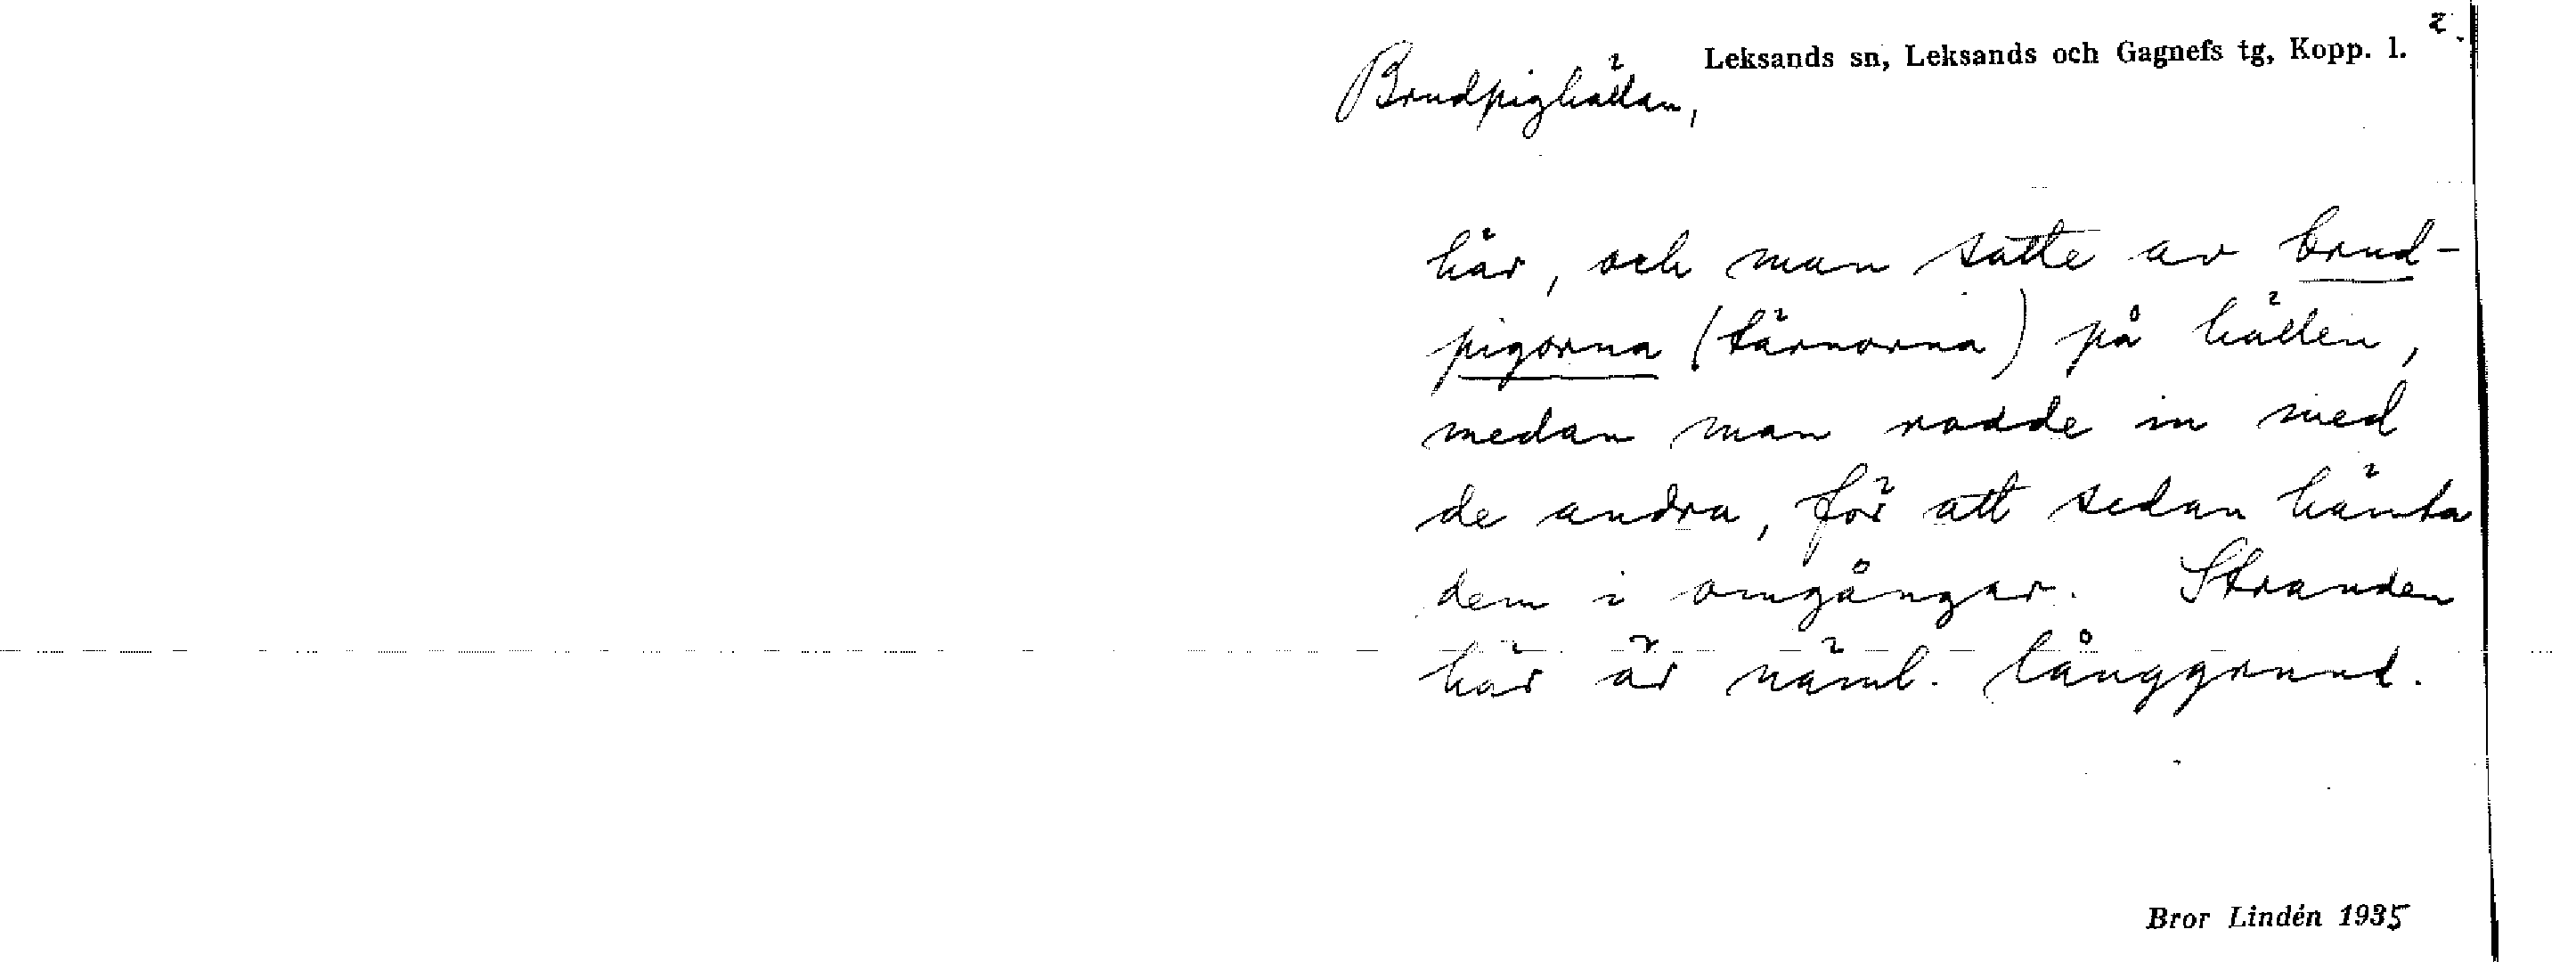 2.
Leksands sn, Leksands och Gagnefs tg, Kopp. l.
Brudpighällan,
här, och man satte av brud-
pigorna (tärnorna) på hällen,
medan man rodde in med
de andra, för att sedan hämta
dem i omgångar. Stranden
här är näml. långgrund.
Bror Lindén 1935